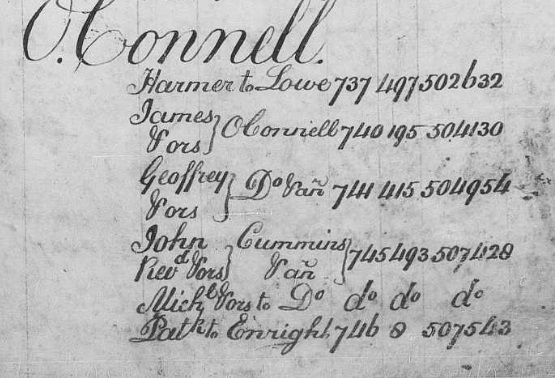 O'Connell.
Harmer to Lowe 737 497 502632
James
&ors } OConnell 740 195 504130
Geoffrey
&ors } Do &an 741 415 504954
John } Cummins
Revd &ors } &an } 745 493 507428
Michl &ors to Do do do do
Patk to Enright 746 8 507543